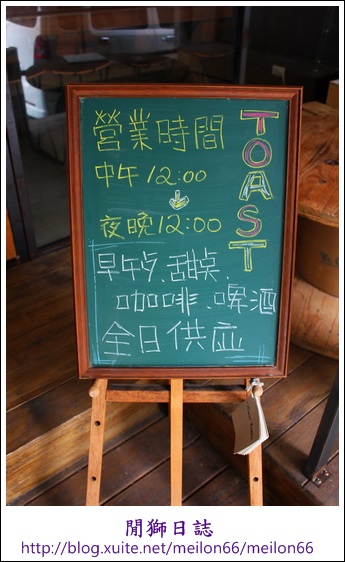 營業時間
中午12:00
↓
夜晚12:00
TOAST
早午夕、甜點、
咖啡、啤酒
全日供应
閒獅日誌
http://blog.xuite.net/meilon66/meilon66